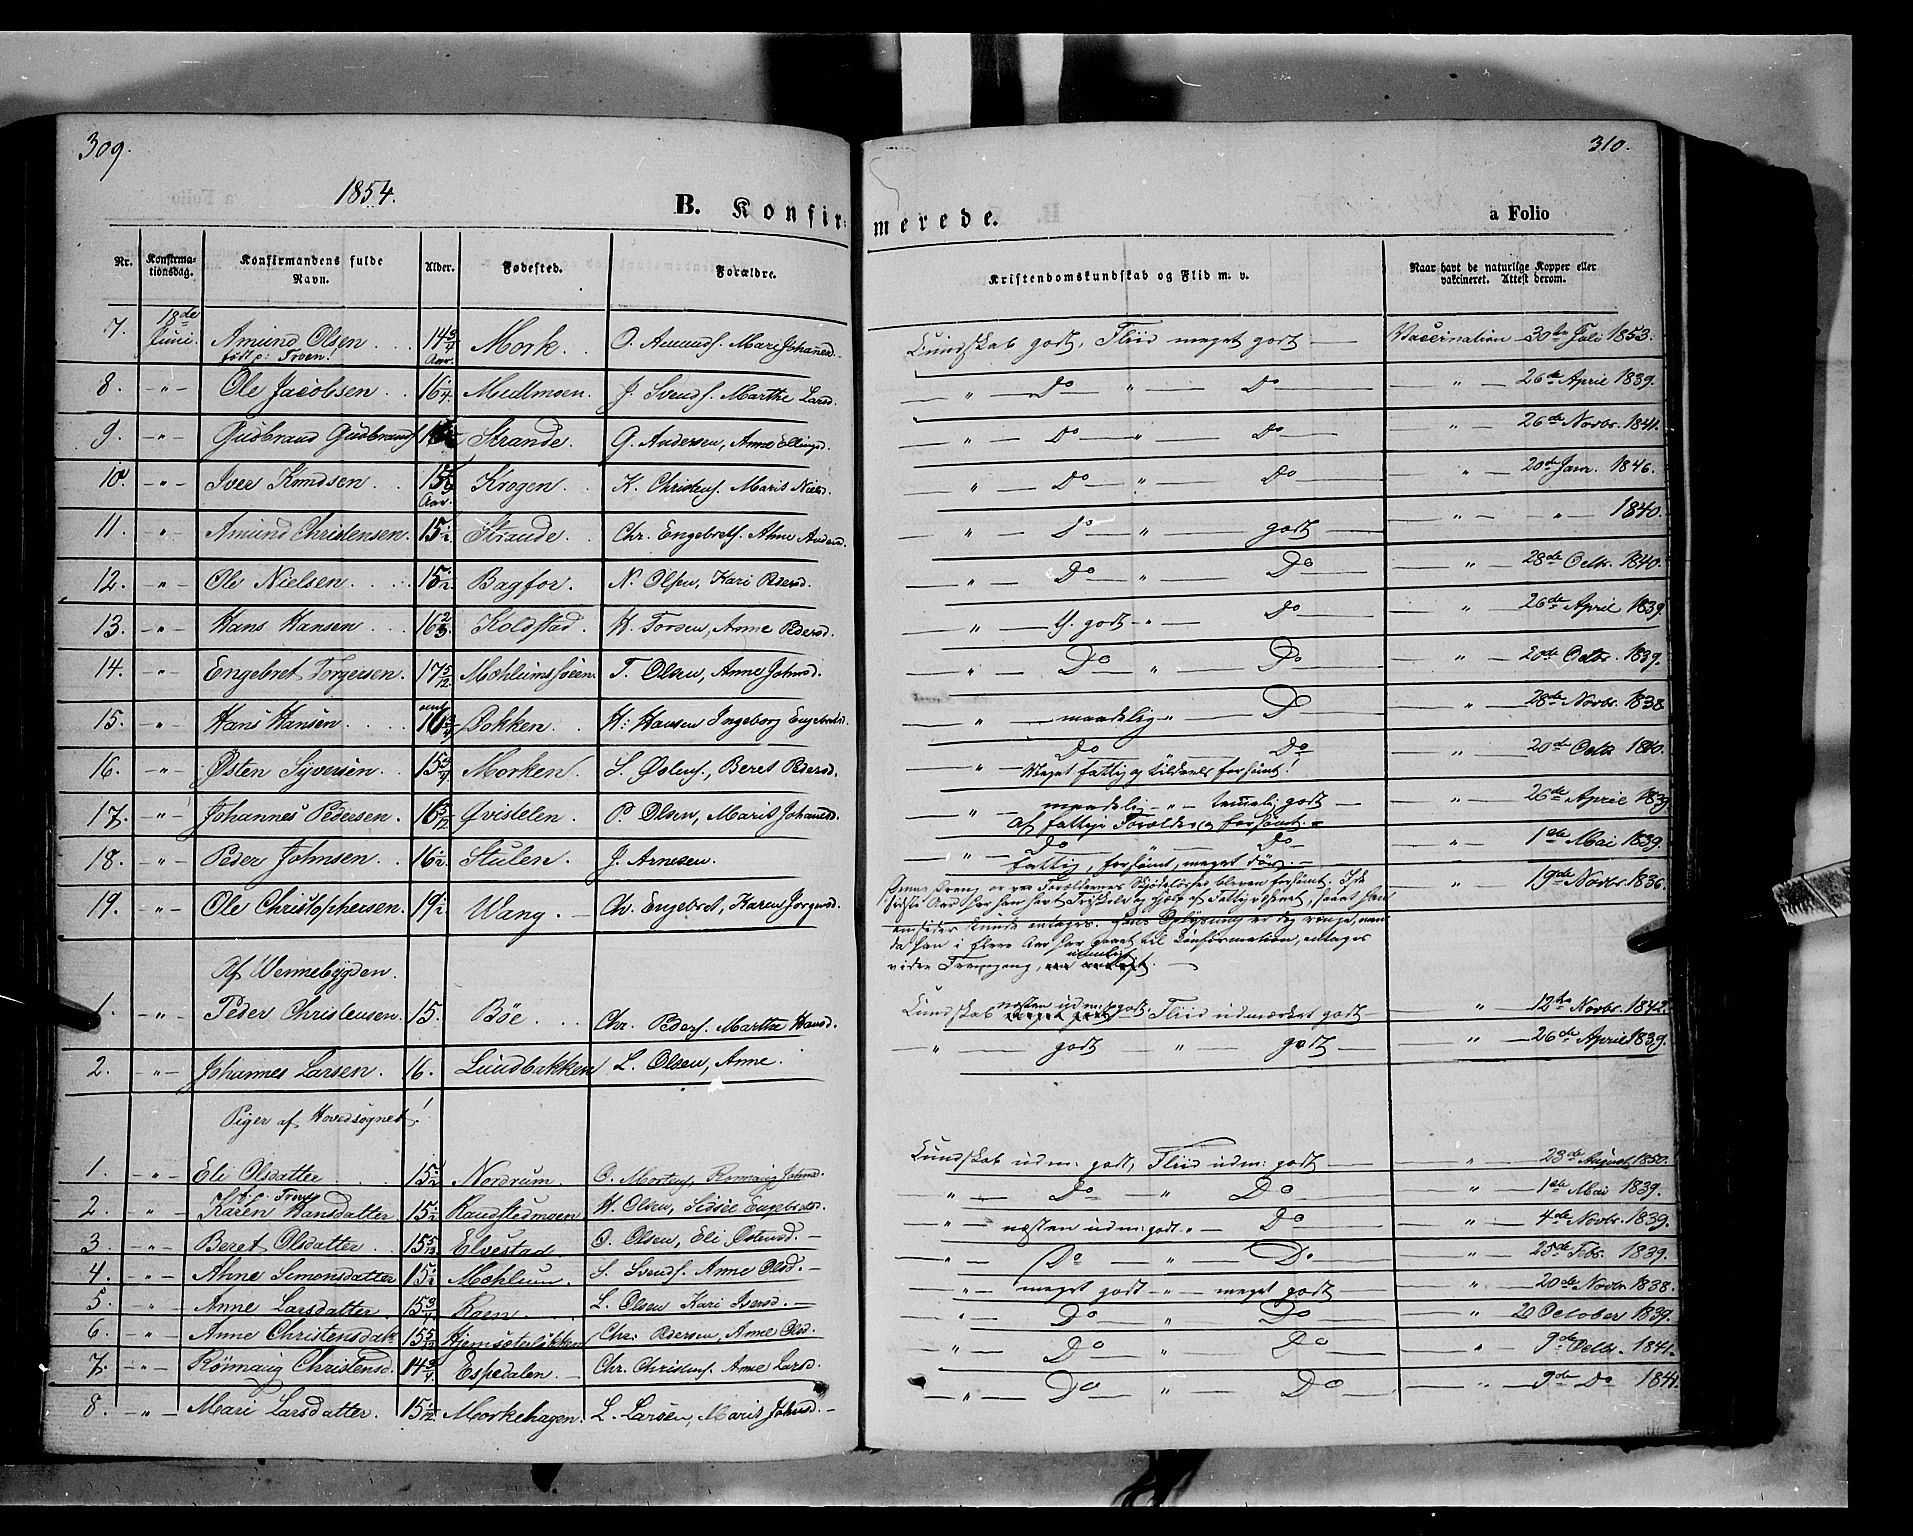 309.
310.
1854.
B. Konfir-
merede.
a Folio
Nr.
Konfirma-
tionsdag.
Konfirmandens fulde
Navn.
Alder.
Fødested.
Forældre.
Kristendomskundskab og Flid m. v.
Naar havt de naturlige Kopper eller
vakcineret. Attest derom.
7. 18de Juni. Amund Olsen 14 3/4 Aar. Mork. O. Amunds. Mari Johansd. Kundskab godt, Fliid meget godt — Vaccination — 30te Juli 1853.
født p: Troen!
8. -"- Ole Jacobsen 16 1/4. Midlmoen. J. Svends. Marthe Larsd. " — Do " — Do — " — 26de April 1839.
9. -"- Gudbrand Gudbrands. Strande. G. Andersen, Anne Ellingsd. — " — Do — " — Do — " — 26de Novbr. 1841.
10. -"- Iver Knudsen. Aar. Krogen. K. Christens. Marit Nielsd. " — Do — " — Do — " — 20de Janr. 1846.
11. " Amund Christensen. 15 1/2 Strande. Chr. Engebrets. Anne Andersd. " — Do — " — godt — " — " — 1840.
12. " Ole Nielsen 15 1/2 Bagfor. N. Olsen, Kari Pedersd. " — Do — " — Do — " — 28de Octbr. 1840.
13. -"- Hans Hansen 16 2/3. Koldstad. H. Torsen, Anne Pedersd. " — M. godt — " — Do — " — 26de April 1839.
14. " Engebret Torgersen. 17 5/12 Mohlumsføen. T. Olsen, Anne Johnsd. " — Do " — Do — " — 20de Octbr. 1839.
15. " Hans Hansen 16 3/4 Bakken. H: Hansen Ingeborg Engebretsd. " — maadelig — " — Do — " — 28de Novbr. 1838
16. -"- Østen Syversen. 15 3/4 Morken. S. Østens., Beret Pedersd. " — Do — Do — " — 20de Octbr 1840.
Meget fattig og tildeels forsømt!
17. -"- Johannes Pedersen. 16 5/12 Qvistelen. P. Olsen, Marit Johansd. " maadelig — " — temelig godt — " — 26de April 1839
Af fattige Forældre og forsømt.
18. " Peder Johnsen. 16 1/2 Stulen. J. Arnesen. " — Do — Do — " — 1ste Mai 1839.
fattig, forsømt, meget døv. —
19. " Ole Christophersen. 19 1/2 Wang. Ch. Engebret, Karen Jorgensd. " — 19de Novbr. 1836.
Denne Dreng er ved Forældrenes Skjødesløshed bleven forsømt. I det
sidste Aar har han havt Friskole og Hjelp af Fattigvæsenet, saa at han
kunde antages. Hans Oplysning er dog ringe, men
da han i flere Aar har gaaet til Confirmation, antages
videre Fremgang,
Af Vennebygden.
1. -"- Peder Christensen 15. Bøe. Chr. Peders. Marthe Hansd. Kundskab næsten udm: godt Fliid udmærket godt — " — 12te Novbr. 1842.
2. -"- Johannes Larsen. 16. Lundbakken L. Olsen, Anne. " — godt — " — godt — " — 26de April 1839.
Piger af Hovedsognet!
1. -"- Eli Olsdatter 15 1/2 Nordrum. O. Mortens, Rønnaug Johnsd. Kundskab udm: godt, Fliid udm: godt — " — 23de August 1850.
2. " Karen Hansdatter 15 1/2 Raudstedmoen H. Olsen, Sidsel Engebretsd. " — Do — " Do — " — 1ste Mai 1839.
3. -"- Beret Olsdatter 15 5/12 Elvestad. O. Olsen, Eli Østensd. — " — næsten udm: godt " — Do — " — 4de Novbr. 1839.
4. -"- Anne Simensdatter 15 1/2 Mohlum. S. Svends. Anne Olsd. — " — Do — " — Do — " — 25de Febr. 1839.
5. " Anne Larsdatter 15 3/4 Roen. L. Olsen Kari Iversd. — " — meget godt — " — meget godt — " — 20de Novbr. 1838.
6. -"- Anne Christensdatt. 15 5/12 Hjemsøteløkken Chr: Pedersen, Anne Olsd. " — Do — " — Do — " — 20 October 1839.
7. -"- Rønnaug Christensd. 14 3/4 Espedalen. Chr. Christens. Anne Larsd. " — Do — " — Do — " — 9de Octbr. 1841.
8. " Mari Larsdatter. 15 5/12 Morkehagen. L. Larsen, Marit Johnsd. — " — Do " — Do — " — 9de Do 1841.